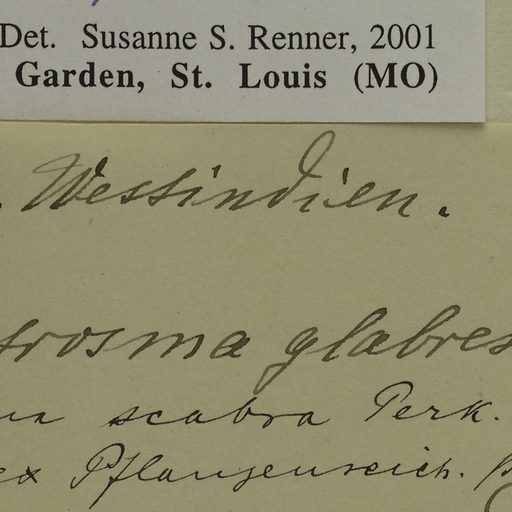 Det. Susanne S. Renner, 2001
Garden, St. Louis (MO)
. Westindien.
trosma glabres
scabra Perk.
ex Pflanzenreich.